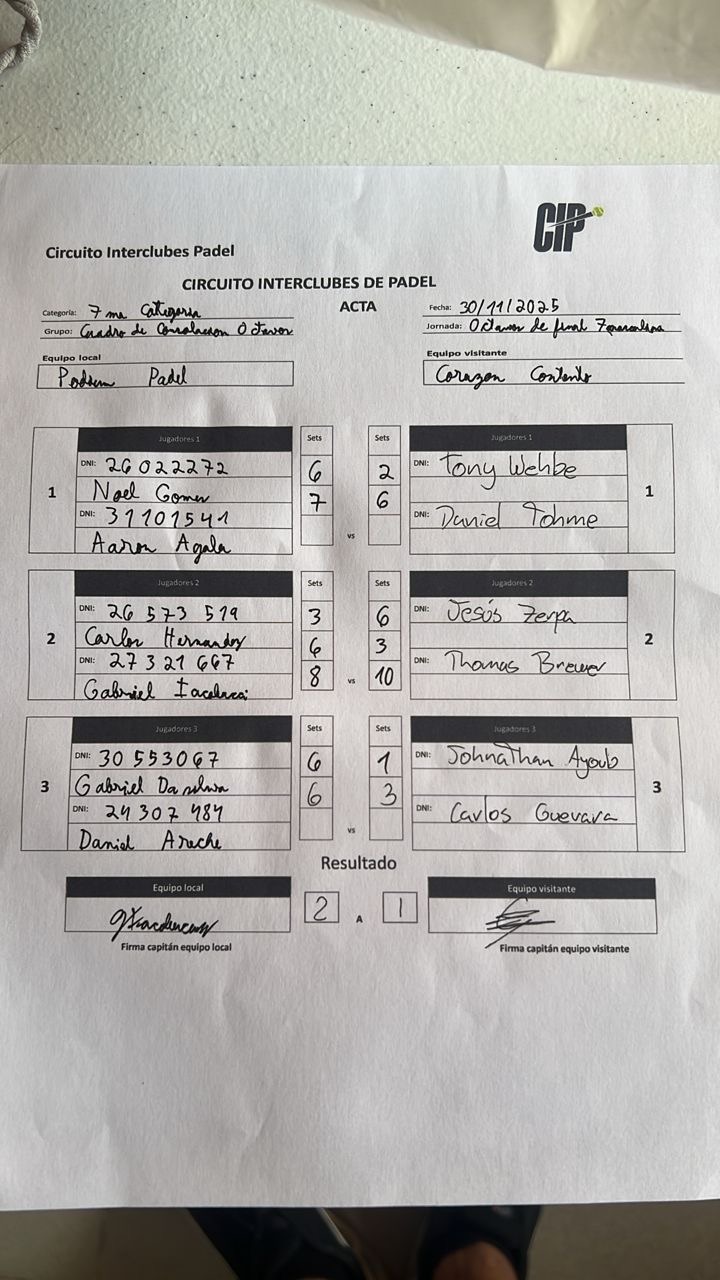 CIP
Circuito Interclubes Padel
CIRCUITO INTERCLUBES DE PADEL
ACTA
Categoría: 7 ma Categoria
Grupo: Cuadro de Consolacion Octavos
Fecha: 30/11/2025
Jornada: Octavos de final
Equipo local
Podium Padel
Equipo visitante
Corazon Contento
Jugadores 1
Sets
Sets
Jugadores 1
1
DNI: 26 022272
6
2
DNI: Tony Wehbe
1
Noel Gomez
7
6
DNI: 31101541
DNI: Daniel Tohme
Aaron Agala
vs
Jugadores 2
Sets
Sets
Jugadores 2
2
DNI: 26 573 519
3
6
DNI: Jesús Zerpa
2
Carlos Hernandez
6
3
DNI: 27 321 667
8
vs
10
DNI: Thomas Brewer
Gabriel
Jugadores 3
Sets
Sets
Jugadores 3
3
DNI: 30 553067
6
1
DNI: Johnathan Ayoub
3
Gabriel Da silva
6
3
DNI: 24 307 484
DNI: Carlos Guevara
Daniel Areche
vs
Resultado
Equipo local
2
A
1
Equipo visitante
Firma capitán equipo local
Firma capitán equipo visitante